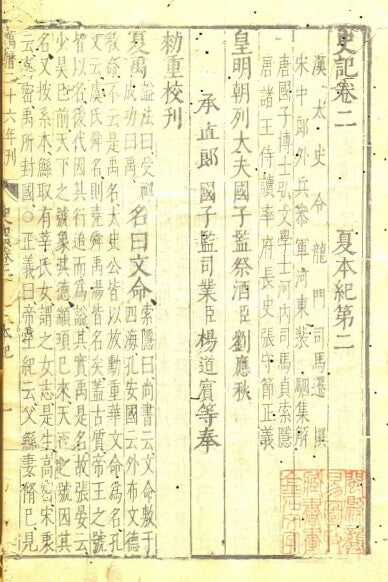 史記卷二 夏本紀第二
漢太史令龍門司馬遷撰
宋中郎外兵參軍河東裴駰集解
唐國子博士弘文學士河內司馬貞索隱
唐諸王侍讀率府長史張守節正義
皇明朝列大夫國子監祭酒臣劉應秋
承直郎國子監司業臣楊道賓等奉
勑重校刊
夏禹
謚法曰受禪
成功曰禹
名曰文命
索隱曰尚書云文命敷于
四海孔安國云外布文德
教命不云是禹名太史公皆以放勳重華文命為名孔
文云虞氏舜名則堯舜禹湯皆名矣蓋古質帝王之號
皆以名後代因其行追而為謚其實禹是名故張晏云
少昊已前天下之號象其德顓頊已來天下之號因其
名又按系本鯀取有莘氏女謂之女志是生高密宋衷
云高密禹所封國○正義曰帝王紀云父鯀妻脩己見
十六年刊